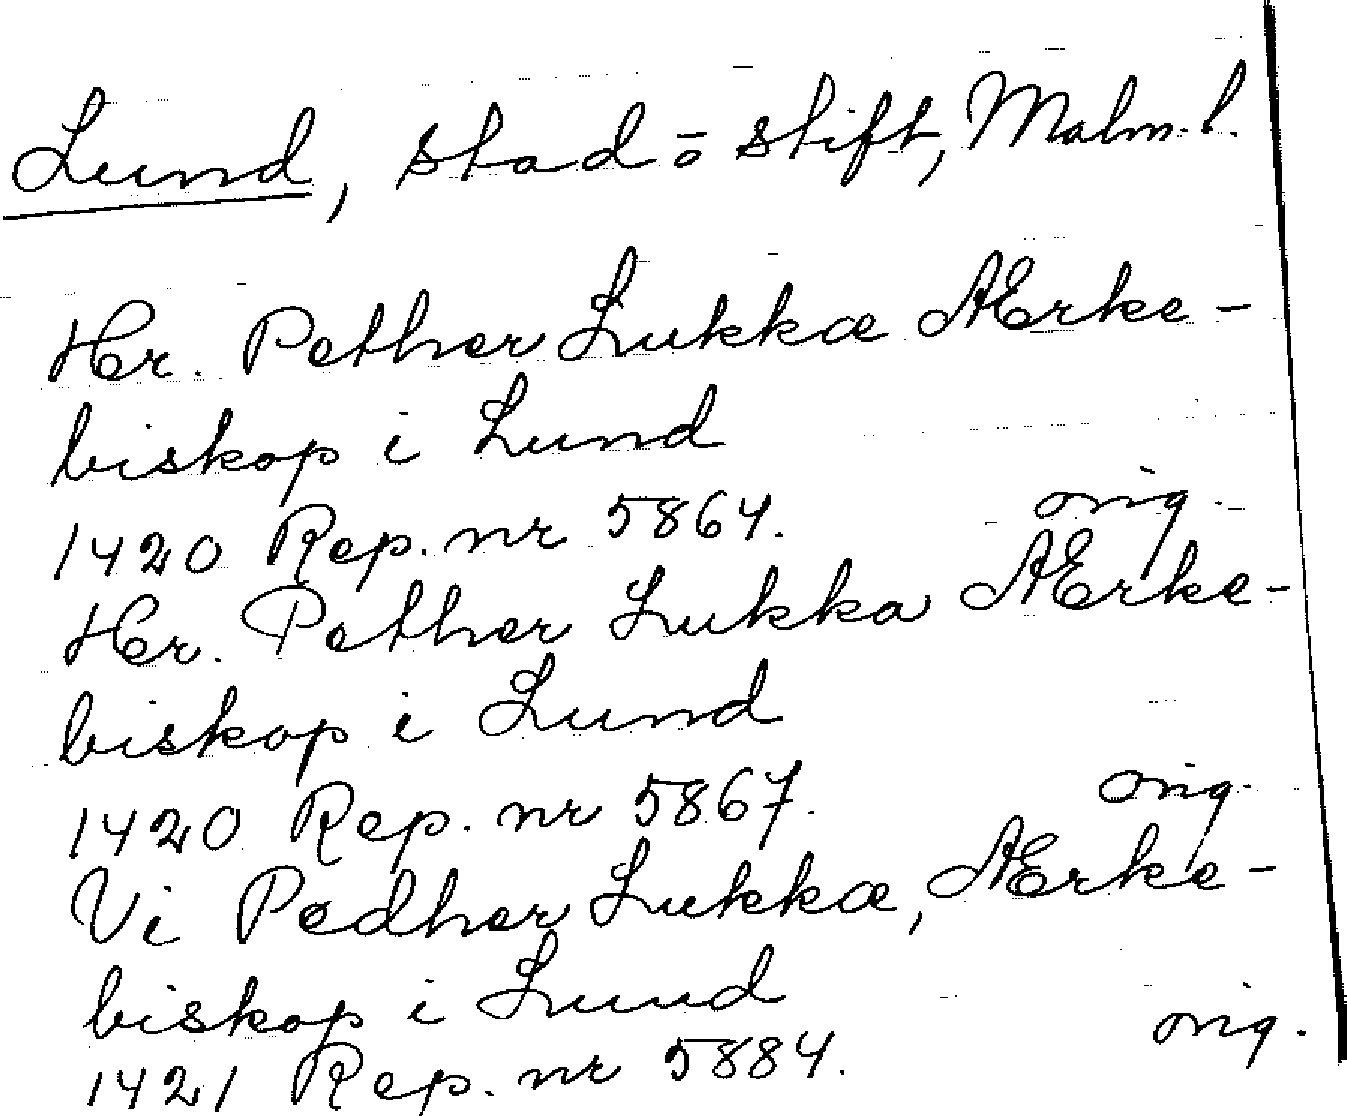 Lund, stad o stift, Malm. l.
Her. Pether Lukkæ Ærke-
biskop i Lund
1420 Rep. nr 5864. orig.
Her. Pether Lukka Ærke-
biskop i Lund
1420 Rep. nr 5867. orig.
Vi Pædher Lukkæ, Ærke-
biskop i Lund
1421 Rep. nr 5884. orig.